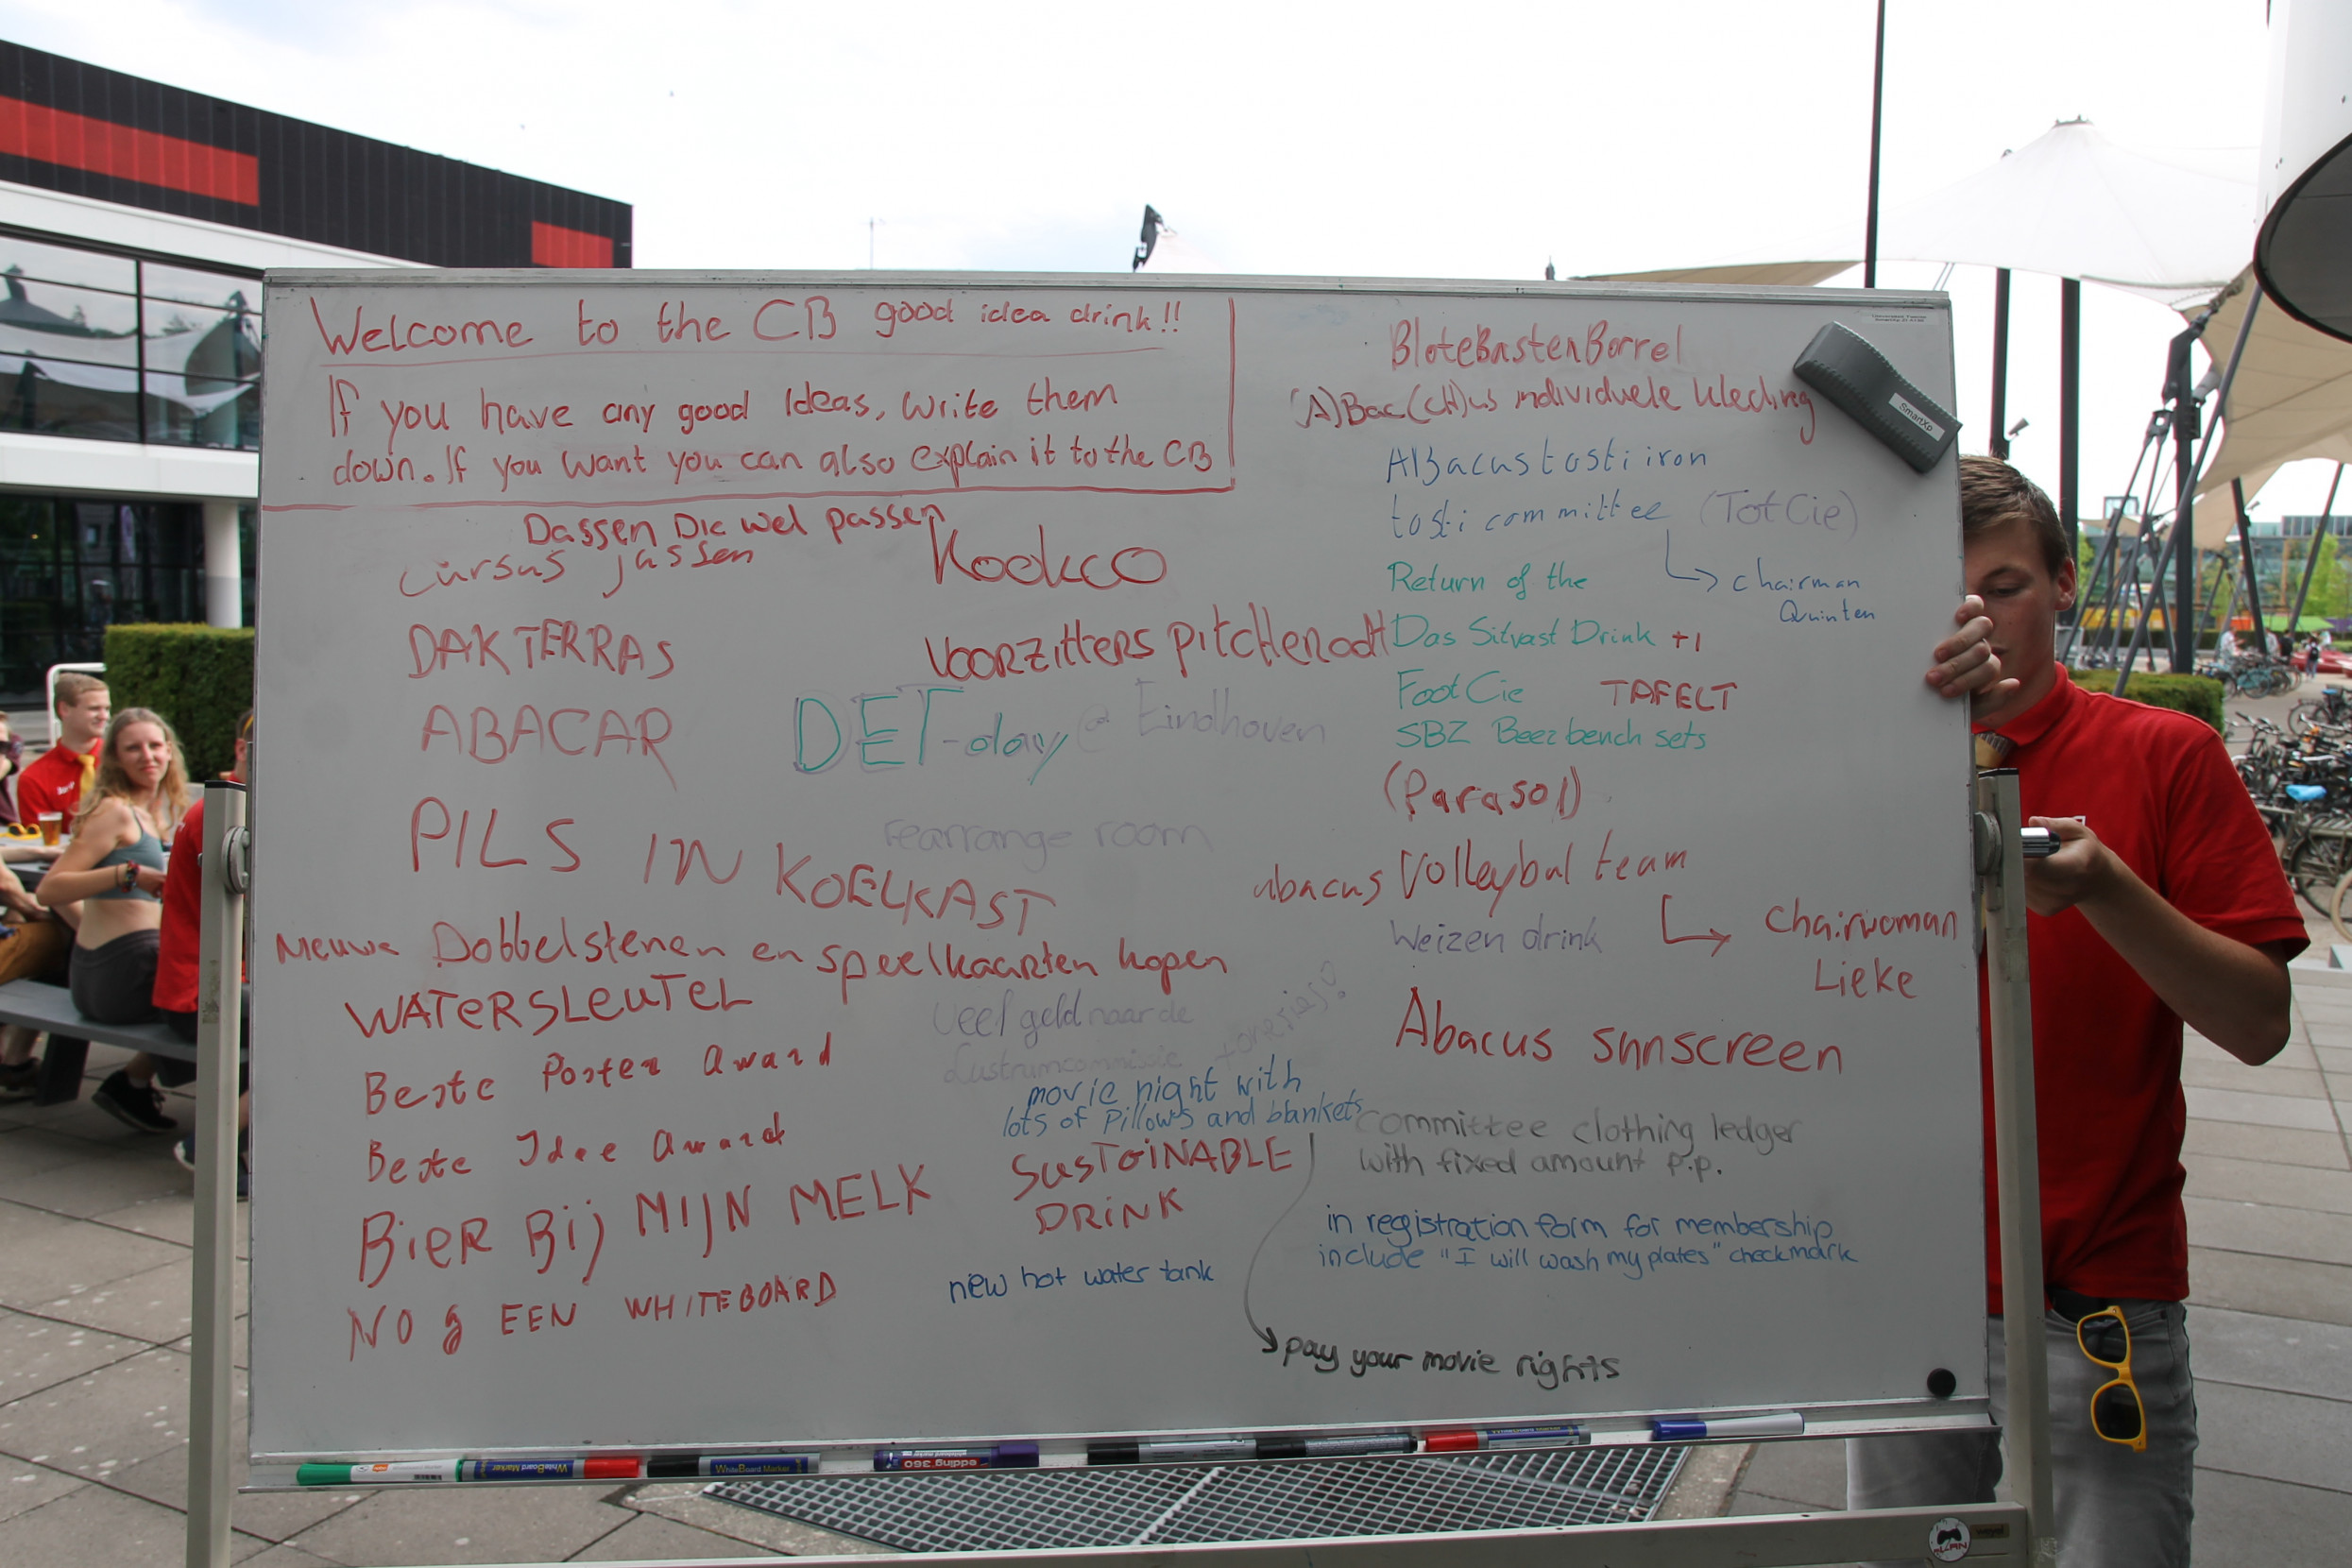 Welcome to the CB good idea drink!!
If you have any good Ideas, write them
down. If you want you can also explain it to the CB
Dassen Die wel passen
cursus jassen
Kookco
DAKTERRAS
VOORZitters PitcHenodt
ABACAR
DET-day @ Eindhoven
PILS IN KOELKAST
rearrange room
Nieuwe Dobbelstenen en speelkaarten kopen
WATERSLEUTEL
Veel geld naar de
Lustrumcommissie
Beste Poster Award
movie night with
lots of Pillows and blankets
Beste Idee Award
SUSTAiNABLE
DRiNK
BiER Bij MIJN MELK
new hot water tank
NOg EEN WHITEBOARD
BloteBastenBorrel
(A)Bac(cH)us individuele kleding
ABacus tosti iron
tosti committee (TotCie)
chairman
Quinten
Return of the
Das Sitvast Drink +1
FootCie TAFELT
SBZ Beer bench sets
(Parasol)
abacus Volleybal team
Weizen drink
Chairwoman
Lieke
Abacus sunscreen
committee clothing ledger
with fixed amount p.p.
in registration form for membership
include "I will wash my plates" checkmark
pay your movie rights
SmartXp
WhiteBoard Marker
WhiteBoard Marker
edding 360